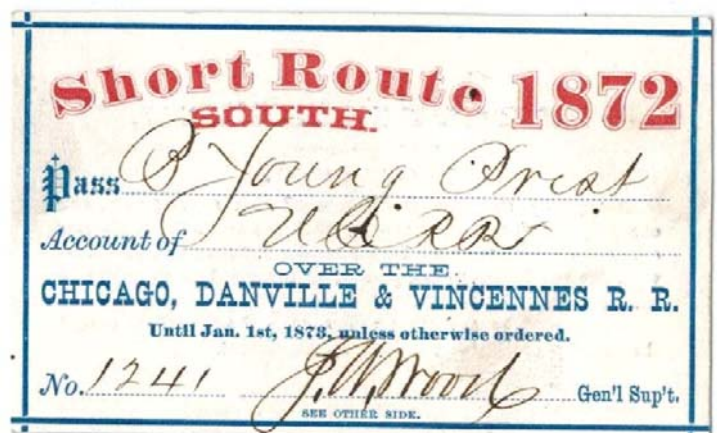 Short Route 1872
SOUTH.
Pass B Young Prest
Account of U C R R
OVER THE
CHICAGO, DANVILLE & VINCENNES R. R.
Until Jan. 1st, 1873, unless otherwise ordered.
No. 1241 J. W. Wood Gen'l Sup't.
SEE OTHER SIDE.